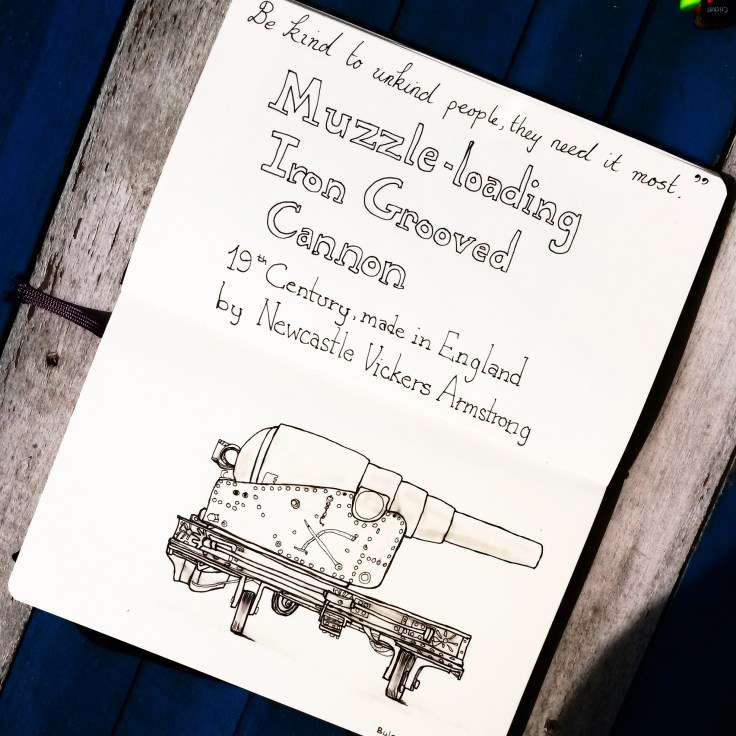 Be kind to unkind people, they need it most.”
Muzzle-loading
Iron Grooved
Cannon
19th Century, made in England
by Newcastle Vickers Armstrong